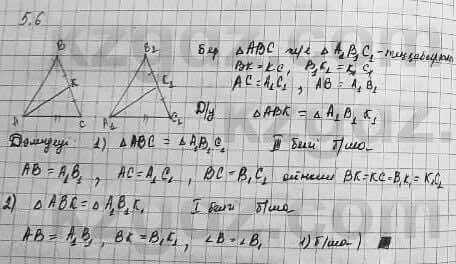 5.6
B
K
A
C
B₁
K₁
A₁
C₁
Бер △ABC және △A₁B₁C₁ - теңқабырғалы
BK = KC, B₁K₁ = K₁C₁
AC = A₁C₁, AB = A₁B₁
Д/у △ABK = △A₁B₁K₁
Дәлелдеу: 1) △ABC = △A₁B₁C₁ III б/ша
AB = A₁B₁, AC = A₁C₁, BC = B₁C₁ BK = KC = B₁K₁ = K₁C₁
2) △ABK = △A₁B₁K₁ I б/ша
AB = A₁B₁, BK = B₁K₁, ∠B = ∠B₁ 1) б/ша